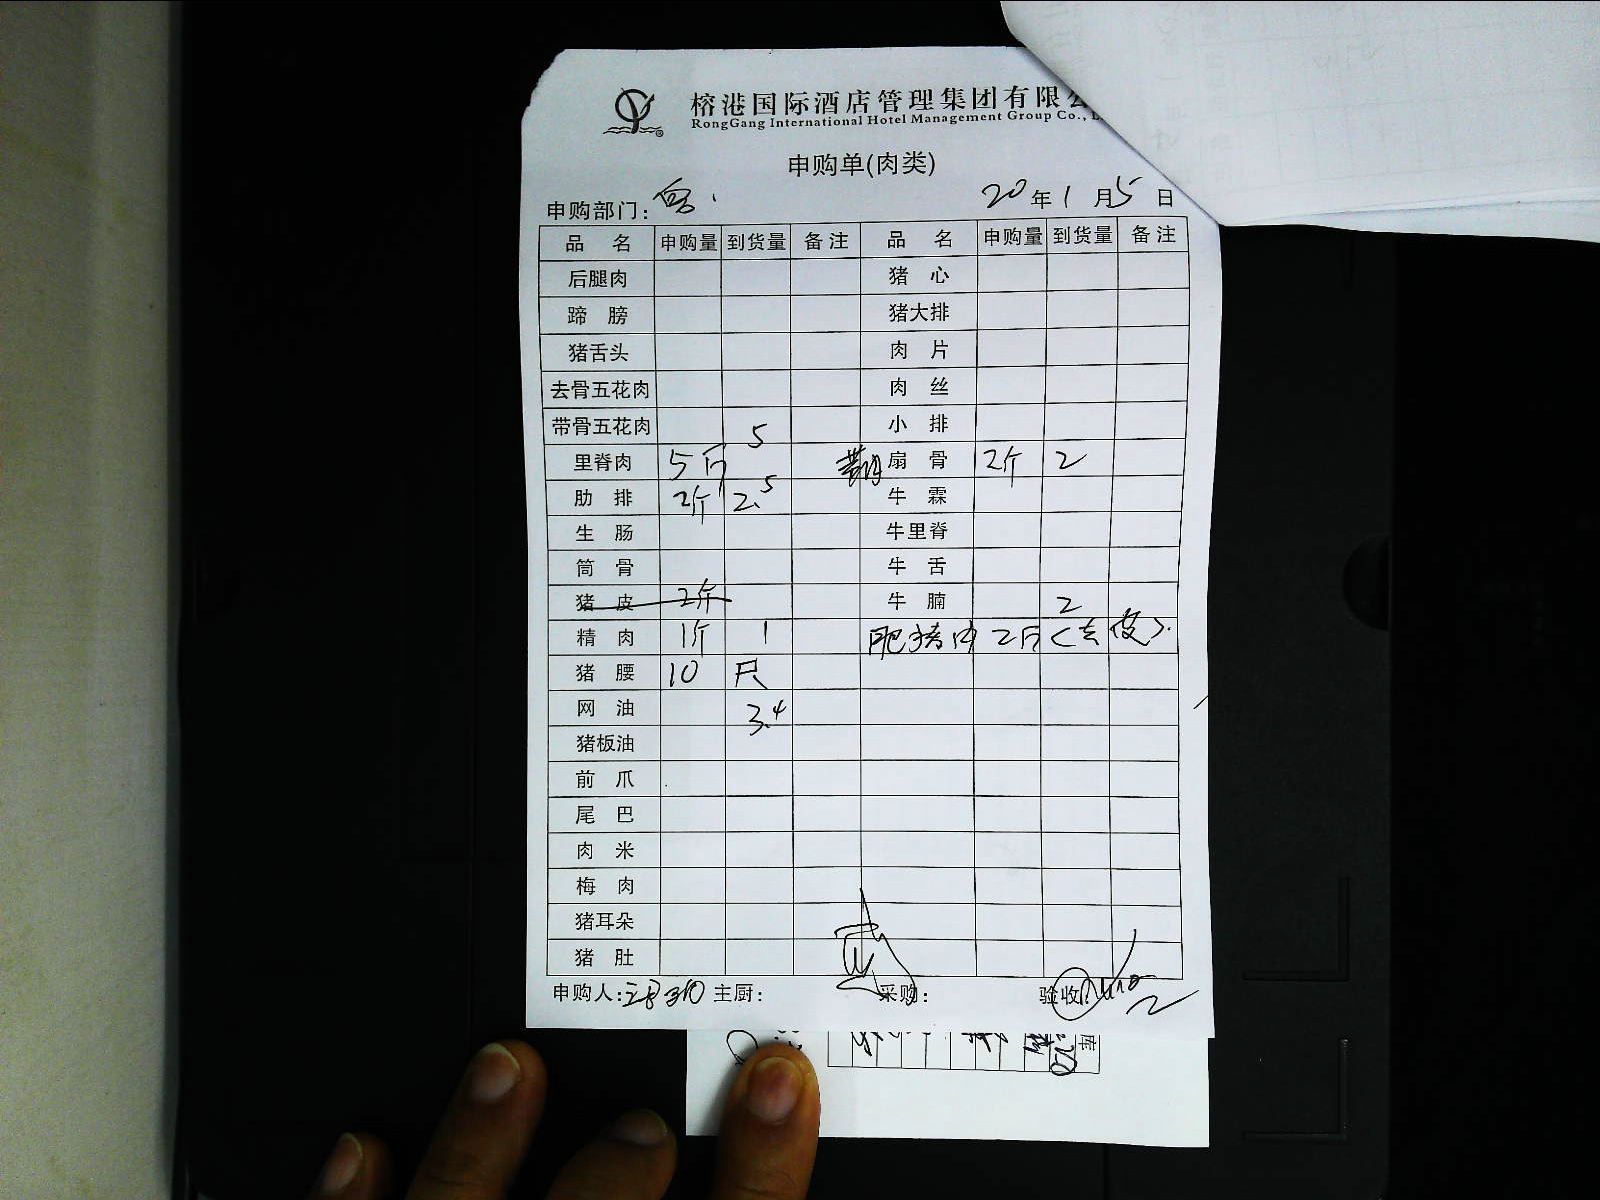 榕港国际酒店管理集团有限公
RongGang International Hotel Management Group Co., L
申购单(肉类)
申购部门: 20年1月5日
品名 申购量 到货量 备注 品名 申购量 到货量 备注
后腿肉 猪心
蹄膀 猪大排
猪舌头 肉片
去骨五花肉 肉丝
带骨五花肉 小排
里脊肉 5斤 5 扇骨 2斤 2
肋排 2斤 2.5 牛霖
生肠 牛里脊
筒骨 牛舌
猪皮 2斤 牛腩
精肉 1斤 1 肥猪肉 2斤 2 (去皮).
猪腰 10 只
网油 3.4
猪板油
前爪
尾巴
肉米
梅肉
猪耳朵
猪肚
申购人: 主厨: 采购: 验收:
库